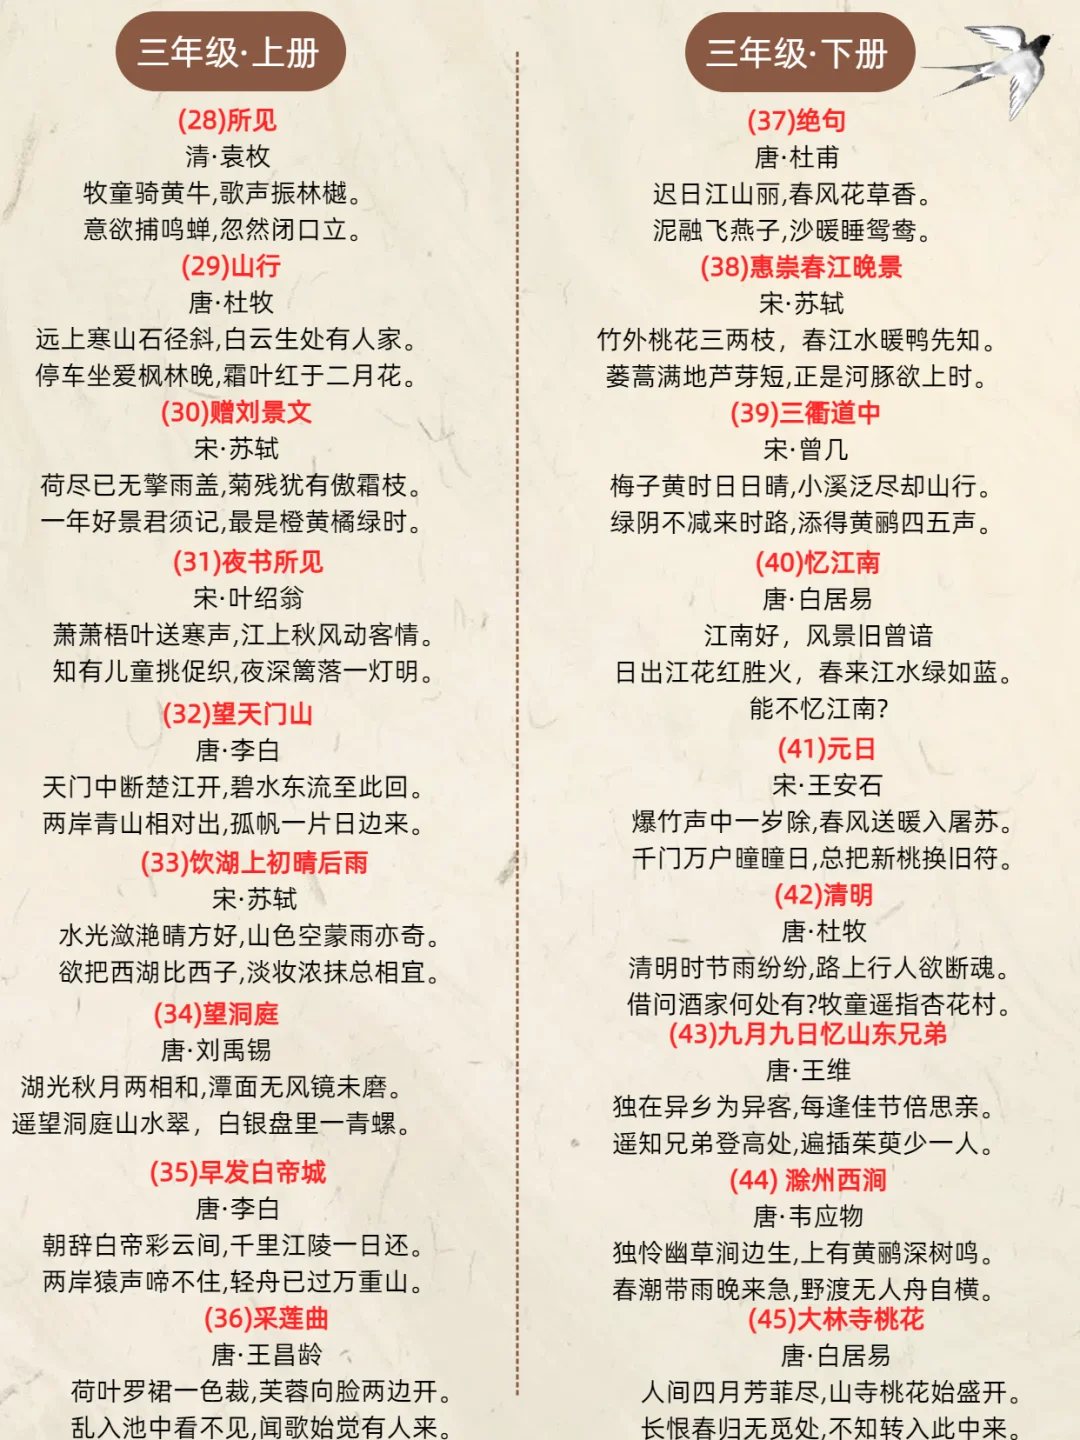 三年级·上册
(28)所见
清·袁枚
牧童骑黄牛,歌声振林樾。
意欲捕鸣蝉,忽然闭口立。
(29)山行
唐·杜牧
远上寒山石径斜,白云生处有人家。
停车坐爱枫林晚,霜叶红于二月花。
(30)赠刘景文
宋·苏轼
荷尽已无擎雨盖,菊残犹有傲霜枝。
一年好景君须记,最是橙黄橘绿时。
(31)夜书所见
宋·叶绍翁
萧萧梧叶送寒声,江上秋风动客情。
知有儿童挑促织,夜深篱落一灯明。
(32)望天门山
唐·李白
天门中断楚江开,碧水东流至此回。
两岸青山相对出,孤帆一片日边来。
(33)饮湖上初晴后雨
宋·苏轼
水光潋滟晴方好,山色空蒙雨亦奇。
欲把西湖比西子,淡妆浓抹总相宜。
(34)望洞庭
唐·刘禹锡
湖光秋月两相和,潭面无风镜未磨。
遥望洞庭山水翠，白银盘里一青螺。
(35)早发白帝城
唐·李白
朝辞白帝彩云间,千里江陵一日还。
两岸猿声啼不住,轻舟已过万重山。
(36)采莲曲
唐·王昌龄
荷叶罗裙一色裁,芙蓉向脸两边开。
乱入池中看不见,闻歌始觉有人来。
三年级·下册
(37)绝句
唐·杜甫
迟日江山丽,春风花草香。
泥融飞燕子,沙暖睡鸳鸯。
(38)惠崇春江晚景
宋·苏轼
竹外桃花三两枝，春江水暖鸭先知。
蒌蒿满地芦芽短,正是河豚欲上时。
(39)三衢道中
宋·曾几
梅子黄时日日晴,小溪泛尽却山行。
绿阴不减来时路,添得黄鹂四五声。
(40)忆江南
唐·白居易
江南好，风景旧曾谙
日出江花红胜火，春来江水绿如蓝。
能不忆江南?
(41)元日
宋·王安石
爆竹声中一岁除,春风送暖入屠苏。
千门万户曈曈日,总把新桃换旧符。
(42)清明
唐·杜牧
清明时节雨纷纷,路上行人欲断魂。
借问酒家何处有?牧童遥指杏花村。
(43)九月九日忆山东兄弟
唐·王维
独在异乡为异客,每逢佳节倍思亲。
遥知兄弟登高处,遍插茱萸少一人。
(44) 滁州西涧
唐·韦应物
独怜幽草涧边生,上有黄鹂深树鸣。
春潮带雨晚来急,野渡无人舟自横。
(45)大林寺桃花
唐·白居易
人间四月芳菲尽,山寺桃花始盛开。
长恨春归无觅处,不知转入此中来。